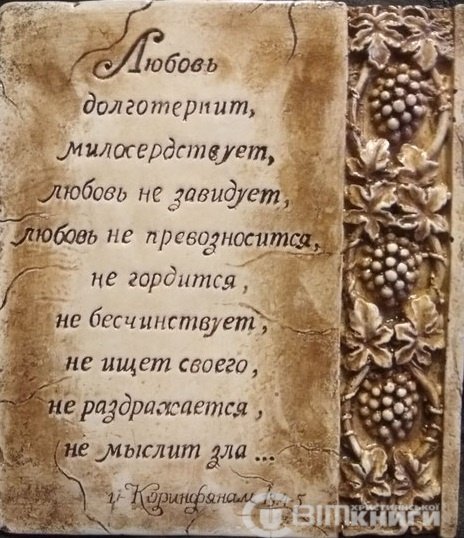 Любовь
долготерпит,
милосердствует,
любовь не завидует,
любовь не превозносится,
не гордится,
не бесчинствует,
не ищет своего,
не раздражается,
не мыслит зла...
Коринфянам
християнської
книги